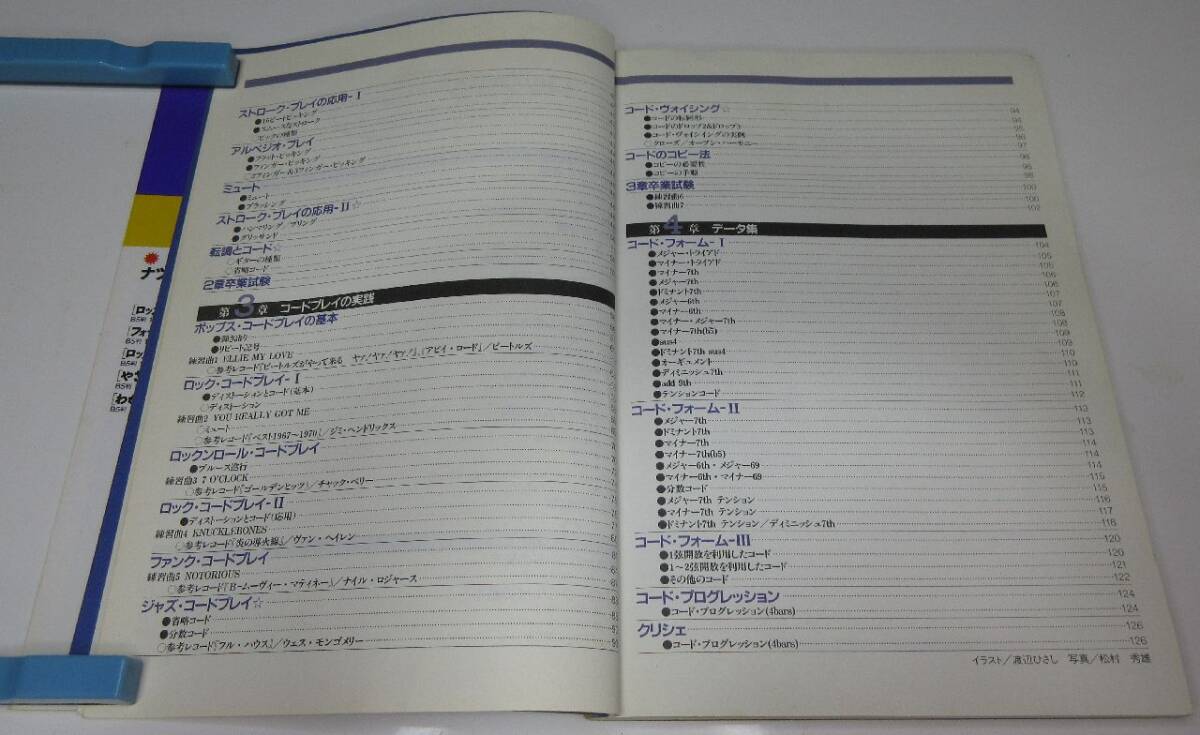 ナツ
[ロッ
B5判
[フォー
B5判
[ロッ
B5判
[やさ
B5判
[わか
B5判
ストローク・プレイの応用-I
●16ビートピッキング
●スムースなストローク
○ピックの種類
アルペジオ・プレイ
●フラット・ピッキング
●フィンガー・ピッキング
○2フィンガー&3フィンガー・ピッキング
ミュート
●ミュート
●ブラッシング
ストローク・プレイの応用-II☆
●ハンマリング/プリング
●グリッサンド
転調とコード☆
○ギターの種類
○省略コード
2章卒業試験
第3章 コードプレイの実践
ポップス・コードプレイの基本
●リピート記号
練習曲1 ELLIE MY LOVE
○参考レコード『ビートルズがやって来る ヤァ!ヤァ!ヤァ!』、『アビイ・ロード』/ビートルズ
ロック・コードプレイ-I
●ディストーションとコード(基本)
○ディストーション
練習曲2 YOU REALLY GOT ME
○ミュート
○参考レコード『ベスト1967～1970』/ジミ・ヘンドリックス
ロックンロール・コードプレイ
●ブルース進行
練習曲3 7 O'CLOCK
○参考レコード『ゴールデンヒッツ』/チャック・ベリー
ロック・コードプレイ-II
●ディストーションとコード(応用)
練習曲4 KNUCKLEBONES
○参考レコード『炎の導火線』/ヴァン・ヘイレン
ファンク・コードプレイ
練習曲5 NOTORIOUS
○参考レコード『B-ムーヴィー・マティネー』/ナイル・ロジャース
ジャズ・コードプレイ☆
●省略コード
●分数コード
○参考レコード『フル・ハウス』/ウェス・モンゴメリー
コード・ヴォイシング☆ 94
●コードの転回形 94
●コードのドロップ2&ドロップ3 95
●コード・ヴォイシングの実例 96
○クローズ/オープン・ハーモニー 97
コードのコピー法 98
●コピーの必要性 98
●コピーの手順 98
3章卒業試験 100
●練習曲6 100
●練習曲7 102
第4章 データ集
コード・フォーム-I 104
●メジャー・トライアド 105
●マイナー・トライアド 105
●マイナー7th 106
●メジャー7th 106
●ドミナント7th 107
●メジャー6th 107
●マイナー6th 108
●マイナー・メジャー7th 108
●マイナー7th(b5) 109
●sus4 109
●ドミナント7th sus4 110
●オーギュメント 110
●ディミニッシュ7th 111
●add 9th 111
●テンションコード 112
コード・フォーム-II 113
●メジャー7th 113
●ドミナント7th 113
●マイナー7th 114
●マイナー7th(b5) 114
●メジャー6th・メジャー69 114
●マイナー6th・マイナー69 115
●分数コード 115
●メジャー7th テンション 116
●マイナー7th テンション 117
●ドミナント7th テンション/ディミニッシュ7th 118
コード・フォーム-III 120
●1弦開放を利用したコード 120
●1～2弦開放を利用したコード 121
●その他のコード 122
コード・プログレッション 124
●コード・プログレッション(4bars) 124
クリシェ 126
●コード・プログレッション(4bars) 126
イラスト/渡辺ひさし 写真/松村 秀雄